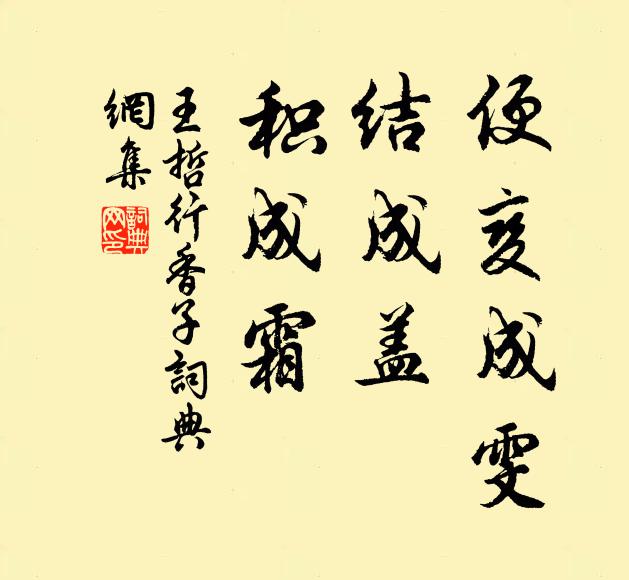 便变成雯
结成盖
积成霜
王哲行香子詞典
網集
詞典
网印